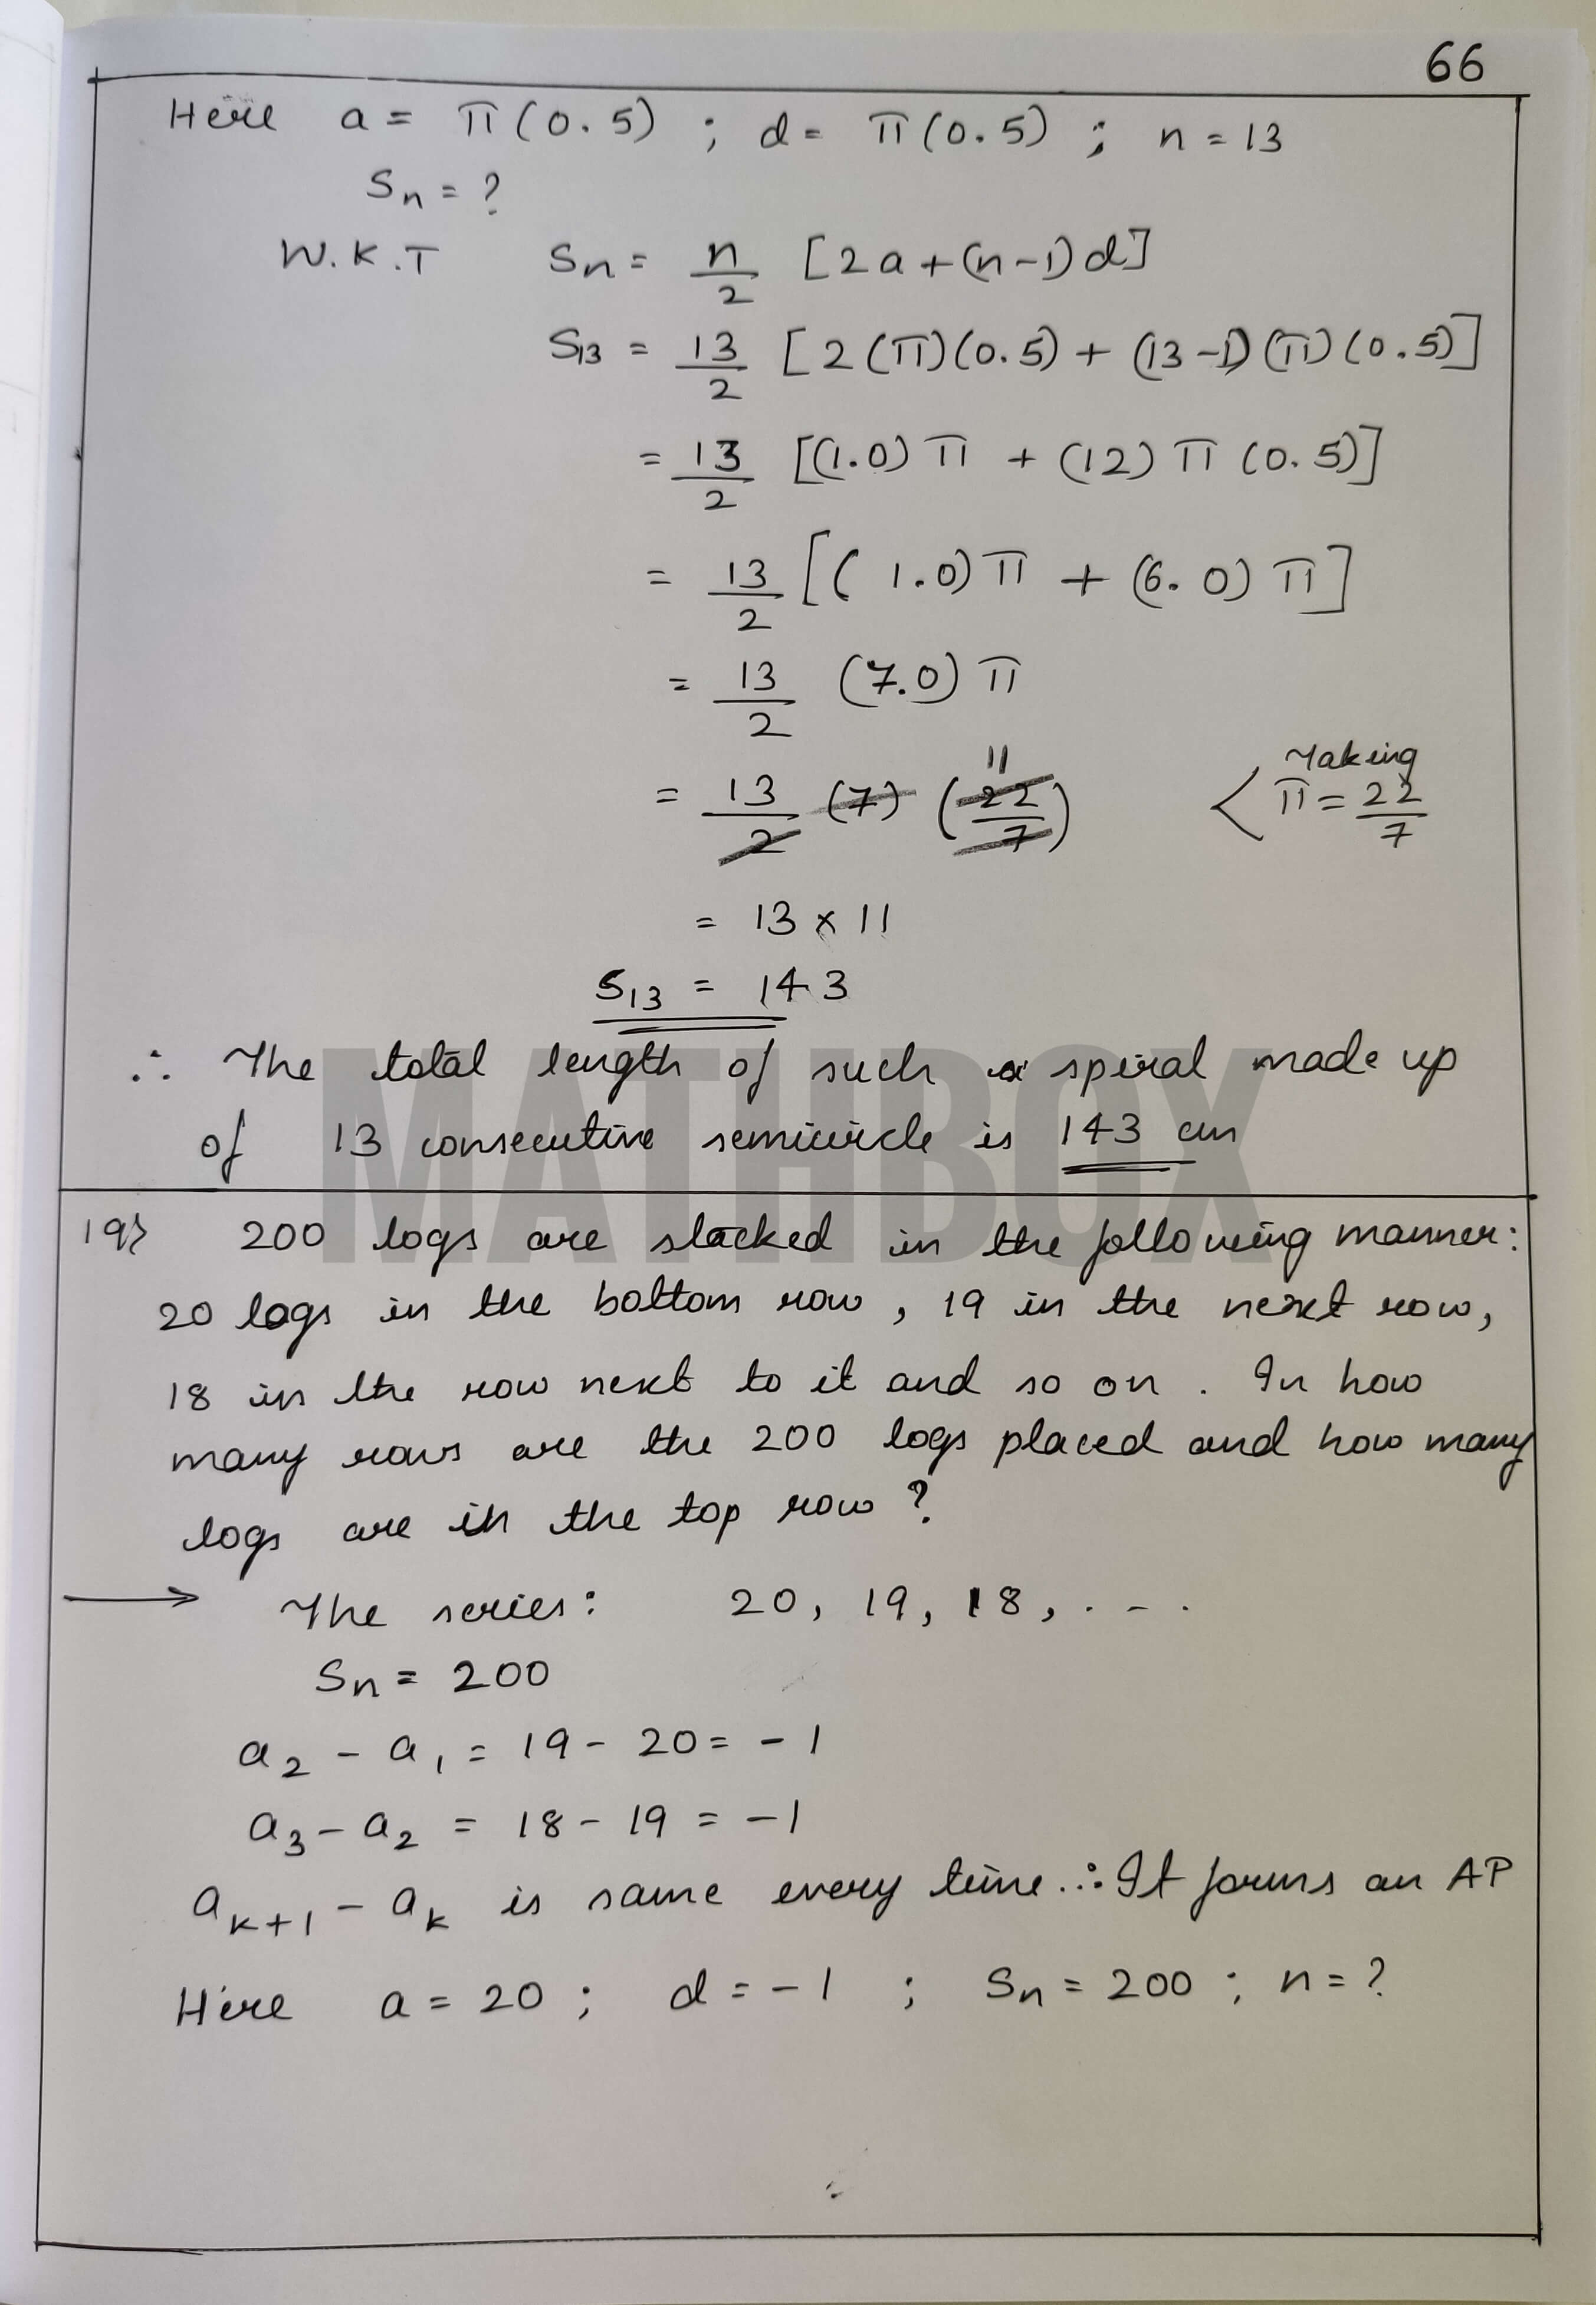 66
Here a = π(0.5) ; d = π(0.5) ; n = 13
Sn = ?
W.K.T Sn = n/2 [2a+(n-1)d]
S13 = 13/2 [2(π)(0.5) + (13-1)(π)(0.5)]
= 13/2 [(1.0)π + (12)π(0.5)]
= 13/2 [(1.0)π + (6.0)π]
= 13/2 (7.0)π
= 13/2 (7) (22/7) 11 < Taking π = 22/7
= 13 x 11
S13 = 143
∴ The total length of such a spiral made up
of 13 consecutive semicircle is 143 cm
MATHBOX
19} 200 logs are stacked in the following manner:
20 logs in the bottom row, 19 in the next row,
18 in the row next to it and so on. In how
many rows are the 200 logs placed and how many
logs are in the top row?
→ The series: 20, 19, 18, ...
Sn = 200
a2 - a1 = 19 - 20 = -1
a3 - a2 = 18 - 19 = -1
ak+1 - ak is same every time. ∴ It forms an AP
Here a = 20 ; d = -1 ; Sn = 200 ; n = ?